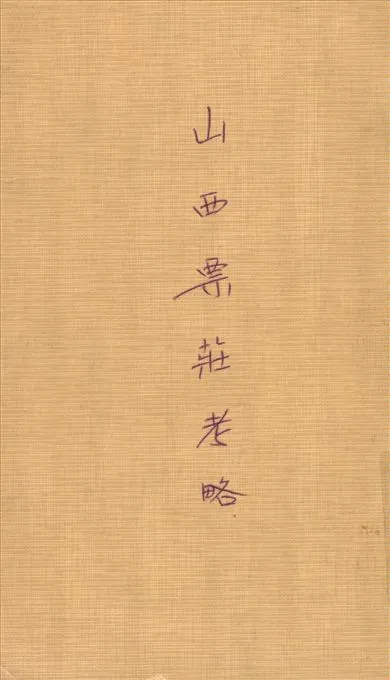 山西票莊考略